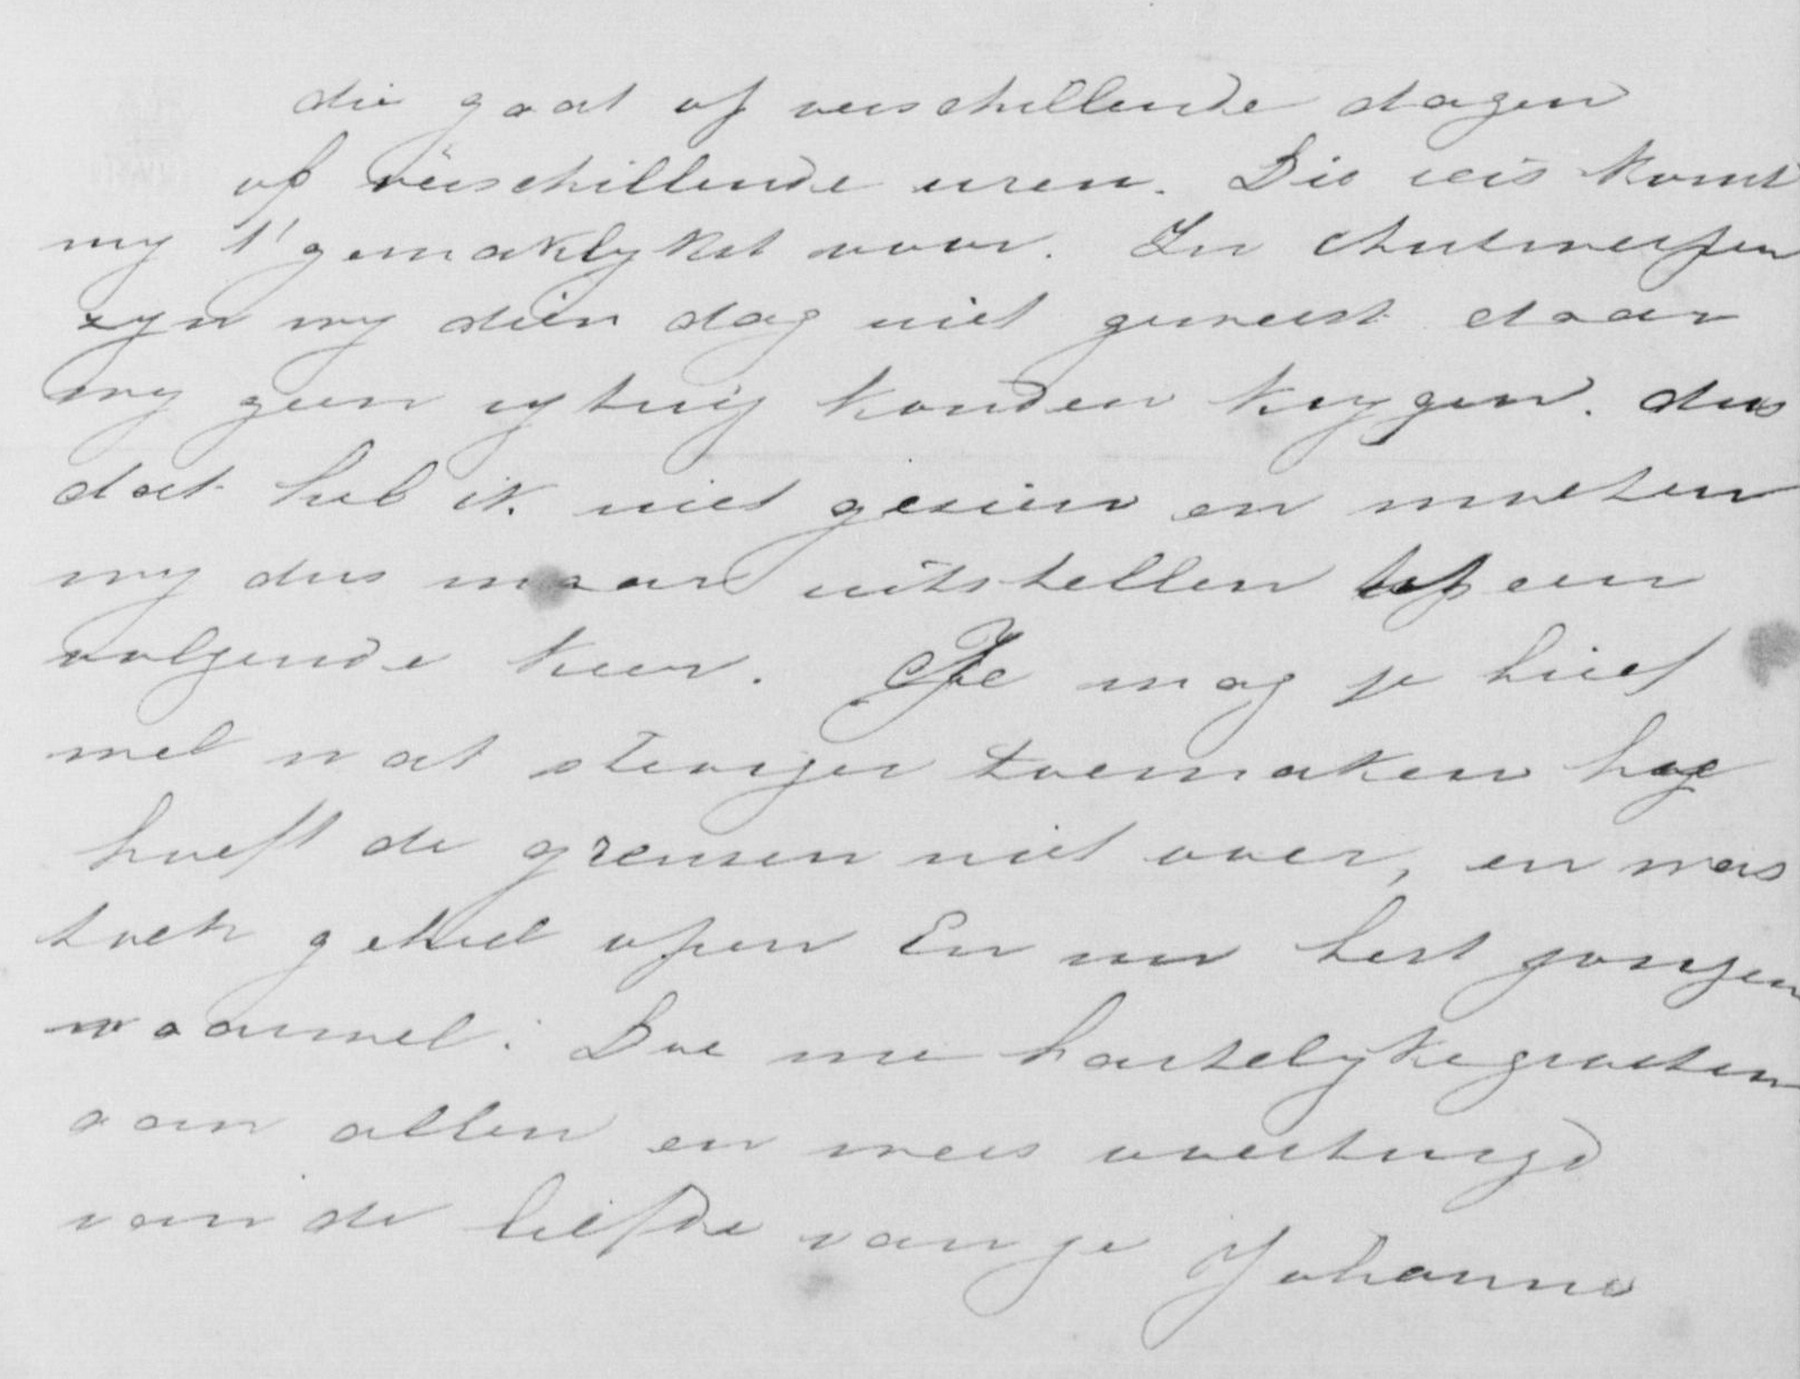 die gaat op verschillende dagen
op verschillende uren. Die reis komt
my 't gemaklykst voor. In Antwerpen
zyn wy dien dag niet geweest daar
wy geen rytuig konden krygen. dus
dat heb ik niet gezien en moeten
wy dus maar uitstellen op een
volgende keer. Je mag je brief
wel wat steviger toemaken hy
hoeft de grenzen niet over, en was
toch geheel open En nu best jongen
vaarwel. Doe me hartelyke groeten
aan allen en wees overtuigd
van de liefde van je Johanna